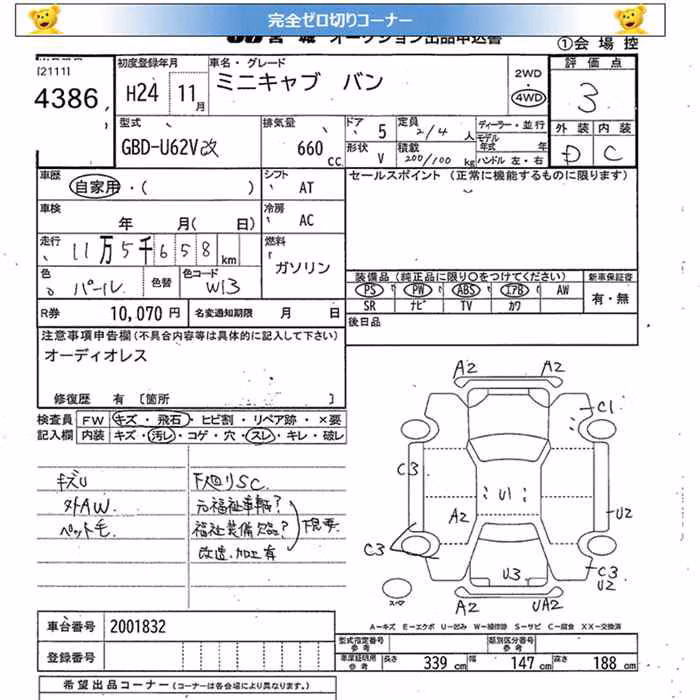 完全ゼロ切りコーナー
宮城 オークション出品申込書
①会場控
[2111]
4386
初度登録年月
H24 11月
車名・グレード
ミニキャブ バン
2WD
・
4WD
評価点
3
外装 内装
D C
型式
GBD-U62V改
排気量
660 cc
ドア 5
形状 V
定員 2/4 人
積載 200/100 kg
ディーラー・並行
モデル年式 年
ハンドル 左・右
車歴
自家用・( )
シフト
AT
セールスポイント (正常に機能するものに限ります)
車検
年 月( 日)
冷房
AC
走行
11万5千658km
燃料
ガソリン
色
パール
色替
色コード
W13
装備品(純正品に限り○をつけてください)
新車保証書
PS PW ABS エアB AW
SR ナビ TV カワ
有・無
R券 10,070円
名変通知期限 月 日
後日品
注意事項申告欄(不具合内容等は具体的に記入して下さい)
オーディオレス
修復歴 有 〔箇所 〕
検査員
記入欄
FW キズ・飛石・ヒビ割・リペア跡・×要
内装 キズ・汚レ・コゲ・穴・スレ・キレ・破レ
キズU
外AW.
ペット毛
下廻りSC.
元福祉車輌?
福祉装備欠品?
改造、加工有
下見要
A2 A2
C1
C3
U1
A2
U2
C3
C3
U2
U3
A2 UA2
スペア
A−キズ E−エクボ U−凹ミ W−補修跡 S−サビ C−腐食 XX−交換済
車台番号 2001832
登録番号
型式指定番号
参考
類別区分番号
参考
車庫証明用
参考
長さ 339cm 幅 147cm 高さ 188cm
希望出品コーナー(コーナーは各会場により異なります。)